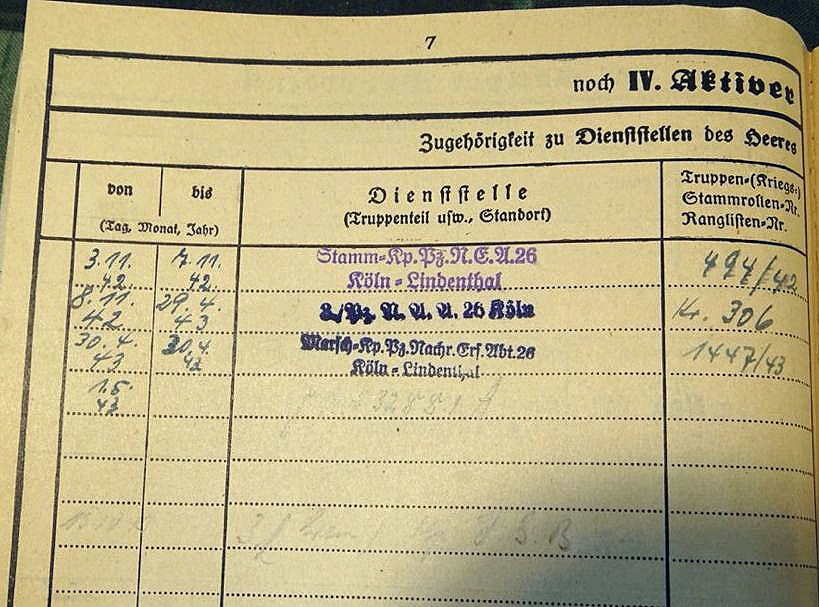 7
noch IV. Aktiver
Zugehörigkeit zu Dienststellen des Heeres
von
bis
(Tag, Monat, Jahr)
Dienststelle
(Truppenteil usw., Standort)
Truppen-(Kriegs-)
Stammrollen-Nr.
Ranglisten-Nr.
3.11. 42.
7.11. 42.
Stamm-Kp.Pz.N.E.A.26
Köln-Lindenthal
494/42
8.11. 42
29.4. 43
Pz. N. A. A. 26 Köln
Kr. 306
30.4. 43
30.4.
Marsch-Kp.Pz.Nachr.Ers.Abt.26
Köln-Lindenthal
1447/43
1.5. 43